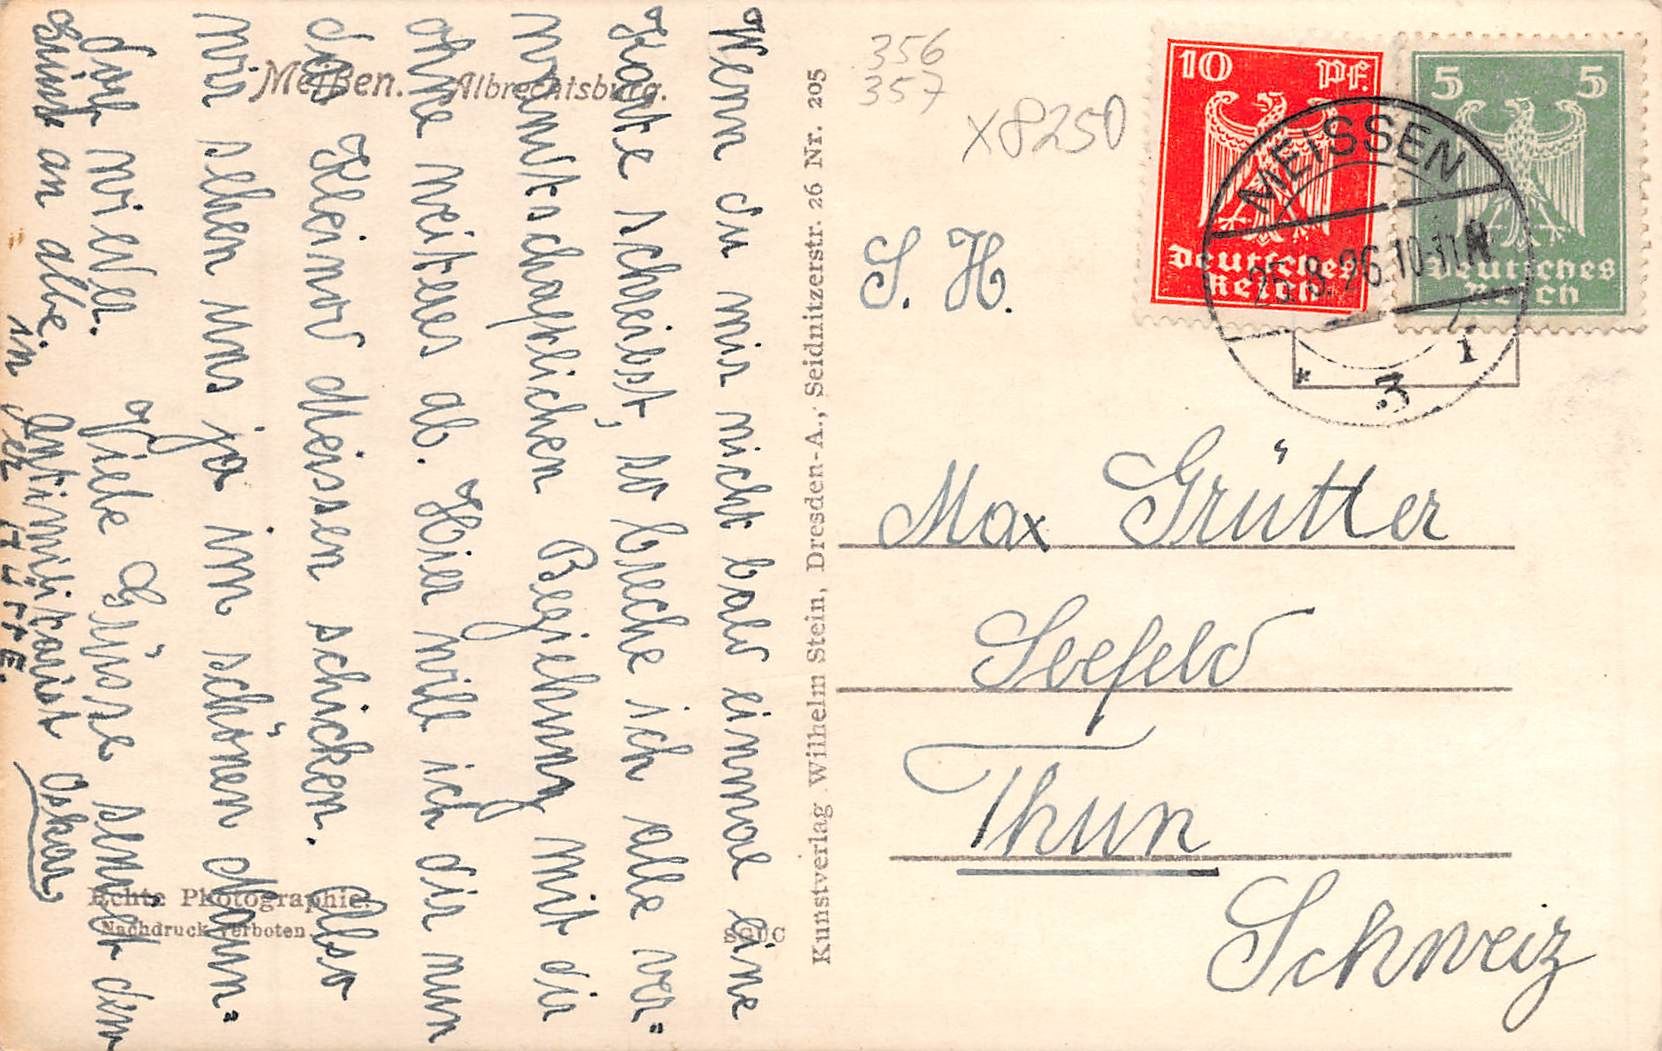 Meißen. Albrechtsburg.
Wenn du mir nicht bald einmal eine
Karte schreibst, so breche ich alle ver-
wandtschaftlichen Beziehung mit dir
ohne weiteres ab. Hier will ich dir nun
die Kleinod Meissen schicken. Also
wir sehen uns ja im schönen Mann-
dorf wieder. Viele Grüsse sendet dein
an alle. Antimilitarist Oskar
in der
Echte Photographie.
Nachdruck verboten.
Kunstverlag Wilhelm Stein, Dresden-A., Seidnitzerstr. 26 Nr. 205
356
357
X8250
10 Pf.
Deutsches
Reich
5 5
Deutsches
Reich
MEISSEN
25.8.26.10-11
* 3 i
S. H.
Max Grütter
Seefeld
Thun
Schweiz